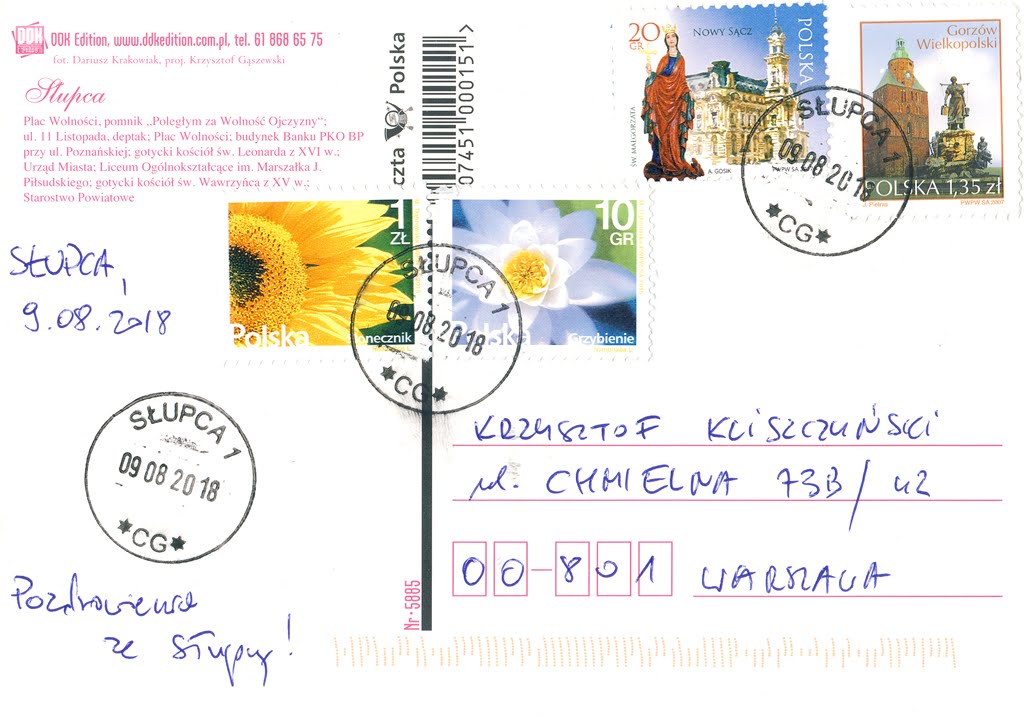 DDK
DDK Edition, www.ddkedition.com.pl, tel. 61 868 65 75
fot. Dariusz Krakowiak, proj. Krzysztof Gąszewski
Słupca
Plac Wolności, pomnik „Poległym za Wolność Ojczyzny”;
ul. 11 Listopada, deptak; Plac Wolności; budynek Banku PKO BP
przy ul. Poznańskiej; gotycki kościół św. Leonarda z XVI w.;
Urząd Miasta; Liceum Ogólnokształcące im. Marszałka J.
Piłsudskiego; gotycki kościół św. Wawrzyńca z XV w.;
Starostwo Powiatowe
czta Polska
07451 000151 >
20
GR
NOWY SĄCZ
POLSKA
ŚW. MAŁGORZATA
A. GOSIK
PWPW SA
Gorzów
Wielkopolski
POLSKA 1,35 zł
PWPW SA 2007
SŁUPCA 1
09 08 2018
*CG*
1
ZŁ
Polska
onecznik
10
GR
Polska
Grzybienie
SŁUPCA 1
09 08 2018
*CG*
SŁUPCA,
9.08.2018
SŁUPCA 1
09 08 2018
*CG*
Pozdrowienia
ze Słupcy!
Nr·5885
KRZYSZTOF KLISZCZYŃSKI
ul. CHMIELNA 73B/42
00-801 WARSZAWA